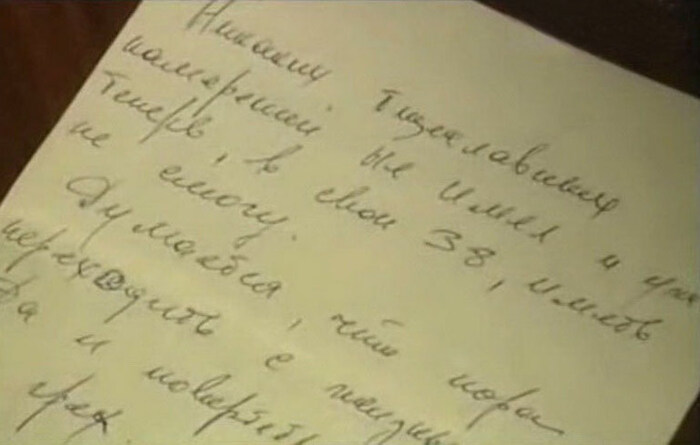 Никаких тщеславных
намерений не имел и уж
теперь, в свои 38, иметь
не смогу.
Думается, что пора
переходить с
Да и
грех.